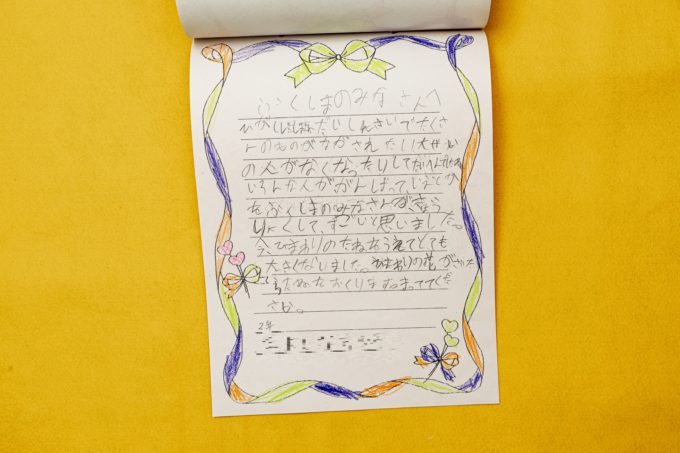 ふくしまのみなさんへ
ひがし日本だいしんさいでたくさ
んのものがながされたり大ぜい
の人がなくなったりしてたいへんでしたね
いろんな人ががんばって、
をふくしまのみなさんが、きょう
りょくして、すごいと思いました。
今、ひまわりのたねをうえてとても
大きくなりました。ひまわりの花がさいた
らたねをおくります。まっててくだ
さい。
2年